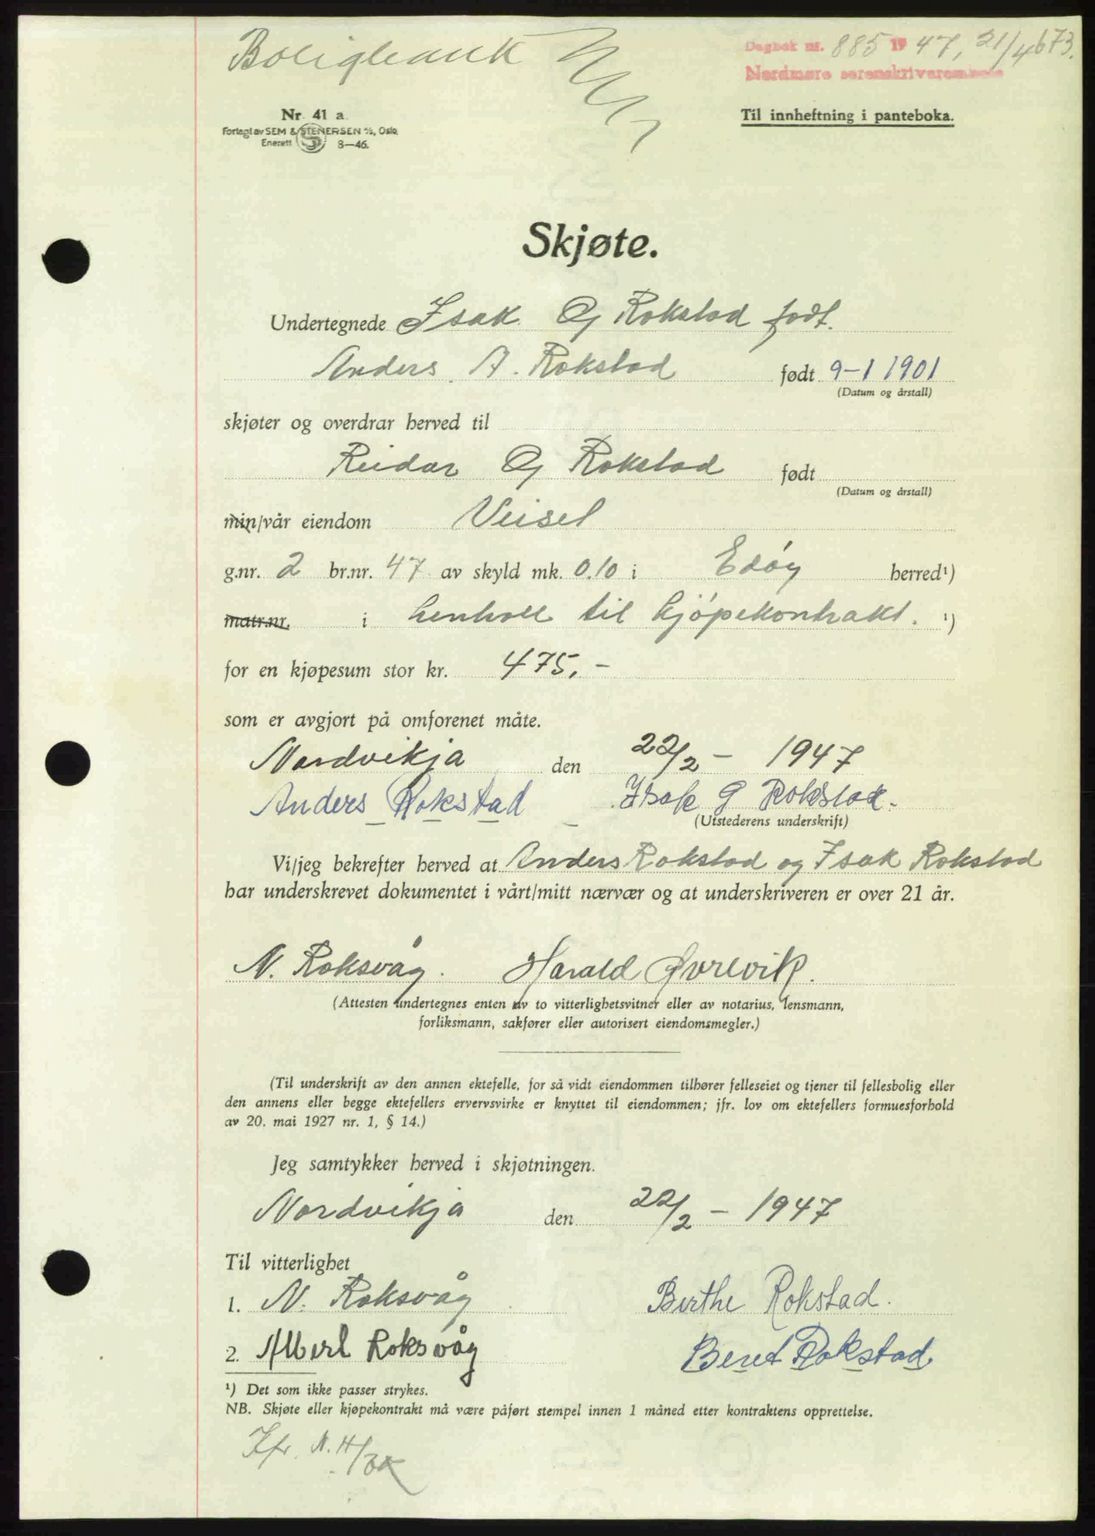 Boligbank
Dagbok nr. 885 1947, 21/4 673.
Nordmøre sorenskriverembete
Nr. 41 a.
Forlagt av SEM & STENERSEN A/S, Oslo.
Enerett 8—46.
Til innheftning i panteboka.
Skjøte.
Undertegnede Isak G Rokstad født.
Anders A. Rokstad født 9-1 1901
(Datum og årstall)
skjøter og overdrar herved til
Reidar G Rokstad født
(Datum og årstall)
min/vår eiendom Veisel
g.nr. 2 br.nr. 47 av skyld mk. 0.10 i Edøy herred¹)
matr.nr. i henhold til kjøpekontrakt. ¹)
for en kjøpesum stor kr. 475.-
som er avgjort på omforenet måte.
Nordvikja den 22/2 - 1947
Anders Rokstad Isak G Rokstad.
(Utstederens underskrift)
Vi/jeg bekrefter herved at Anders Rokstad og Isak Rokstad
har underskrevet dokumentet i vårt/mitt nærvær og at underskriveren er over 21 år.
N. Roksvåg. Harald Ørevik.
(Attesten undertegnes enten av to vitterlighetsvitner eller av notarius, lensmann,
forliksmann, sakfører eller autorisert eiendomsmegler.)
(Til underskrift av den annen ektefelle, for så vidt eiendommen tilhører felleseiet og tjener til fellesbolig eller
den annens eller begge ektefellers ervervsvirke er knyttet til eiendommen; jfr. lov om ektefellers formuesforhold
av 20. mai 1927 nr. 1, § 14.)
Jeg samtykker herved i skjøtningen.
Nordvikja den 22/2 - 1947
Til vitterlighet
1. N. Roksvåg Berthe Rokstad.
2. Albert Roksvåg Beret Rokstad
¹) Det som ikke passer strykes.
NB. Skjøte eller kjøpekontrakt må være påført stempel innen 1 måned etter kontraktens opprettelse.